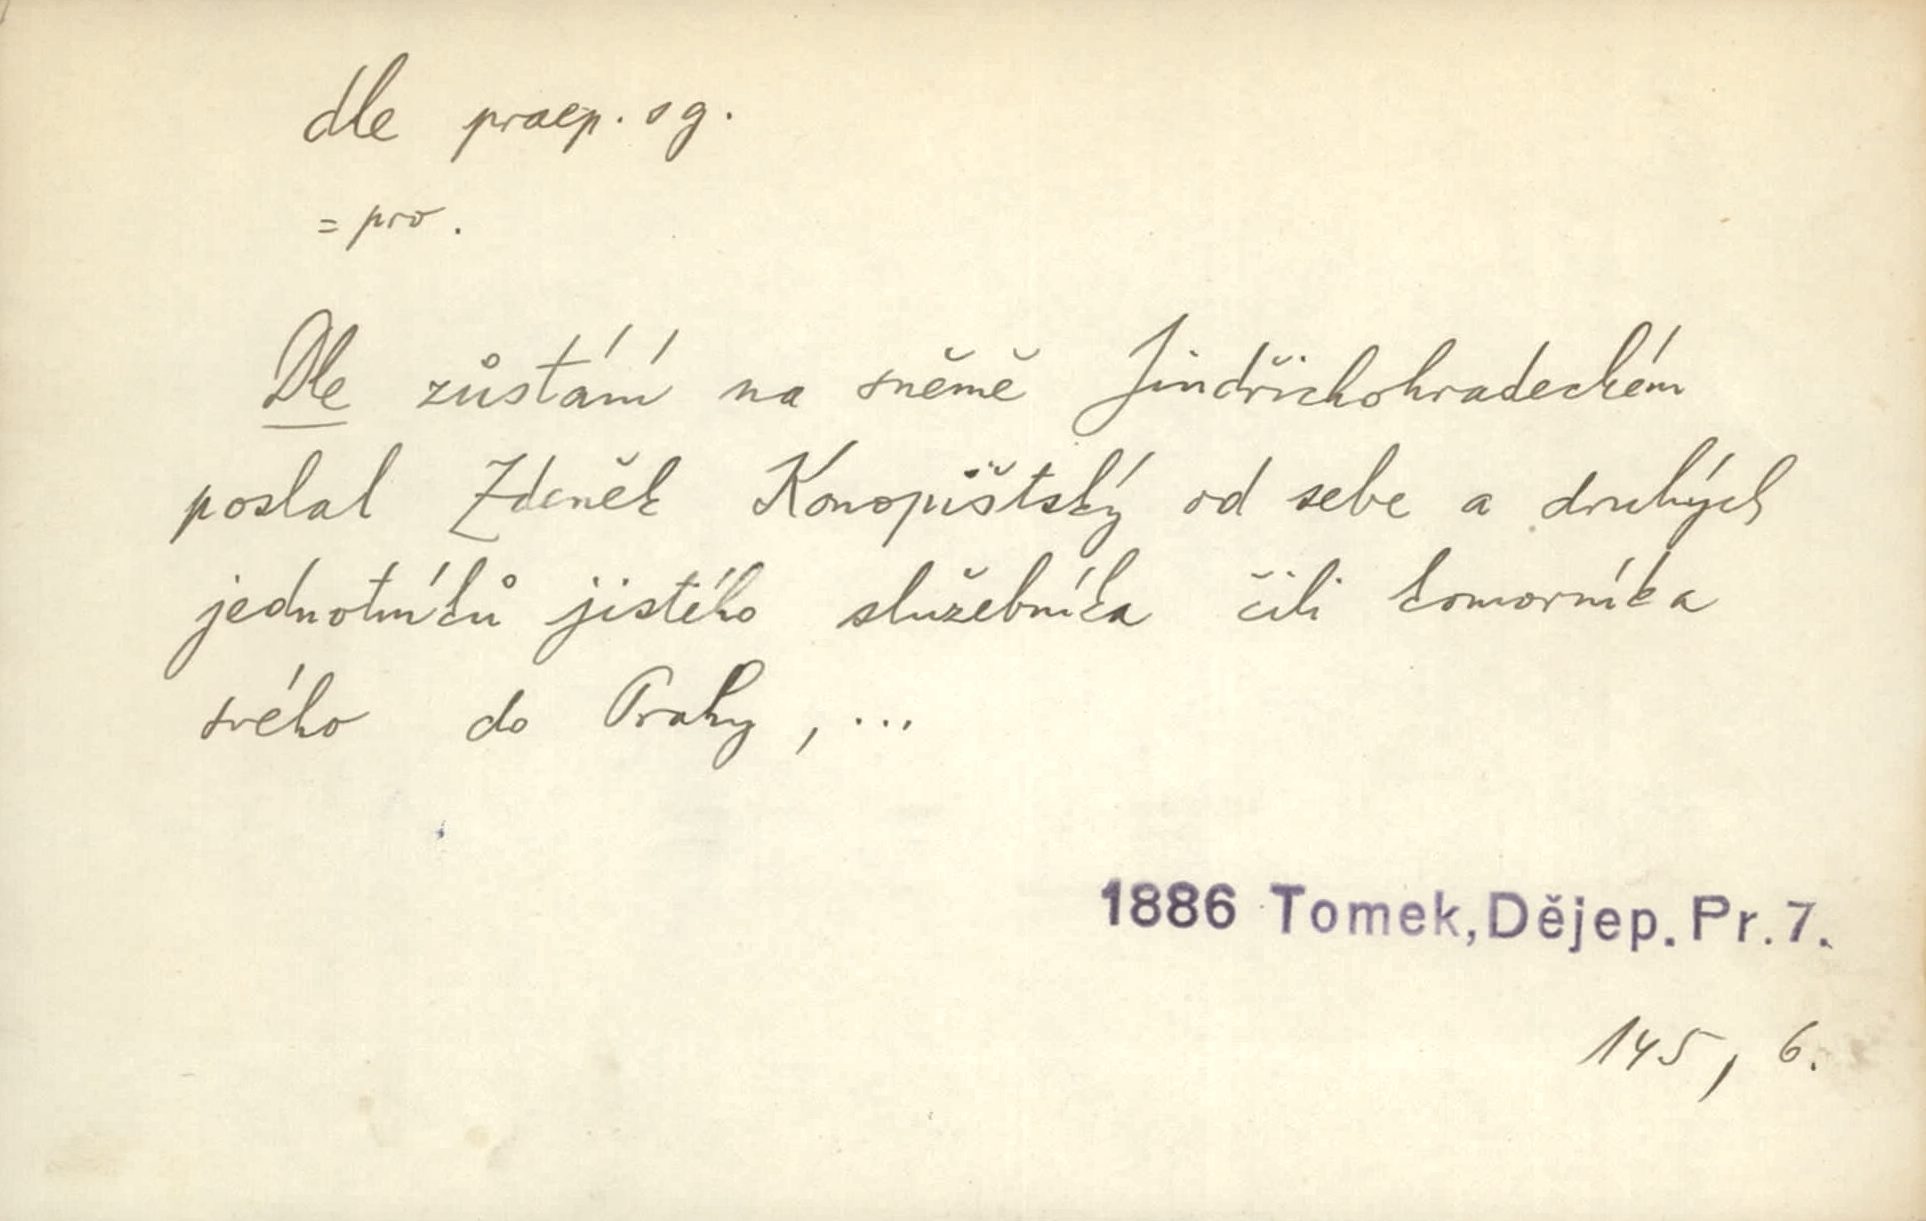 dle praep. sg.
= pro.
Dle zůstání na sněmě Jindřichohradeckém
poslal Zdeněk Konopištský od sebe a druhých
jednotníků jistého služebníka čili komorníka
svého do Prahy, ...
1886 Tomek, Dějep. Pr. 7.
145, 6.